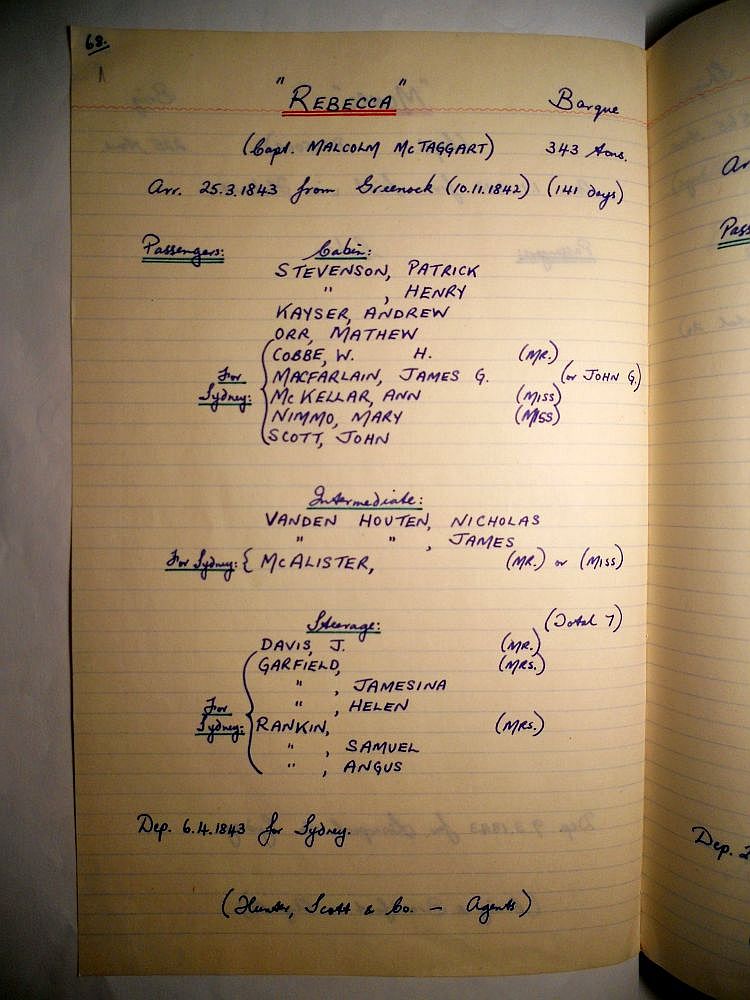 68.
"REBECCA" Barque
(Capt. MALCOLM McTAGGART) 343 tons.
Arr. 25.3.1843 from Greenock (10.11.1842) (141 days)
Passengers: Cabin:
STEVENSON, PATRICK
" , HENRY
KAYSER, ANDREW
ORR, MATHEW
COBBE, W. H. (MR.)
For Sydney: MACFARLAIN, JAMES G. (or JOHN G.)
McKELLAR, ANN (MISS)
NIMMO, MARY (MISS)
SCOTT, JOHN
Intermediate:
VANDEN HOUTEN, NICHOLAS
" " , JAMES
For Sydney: { McALISTER, (MR.) or (MISS)
Steerage: (Total 7)
DAVIS, J. (MR.)
GARFIELD, (MRS.)
" , JAMESINA
" , HELEN
For Sydney: RANKIN, (MRS.)
" , SAMUEL
" , ANGUS
Dep. 6.4.1843 for Sydney.
(Hunter, Scott & Co. – Agents)
Dep.